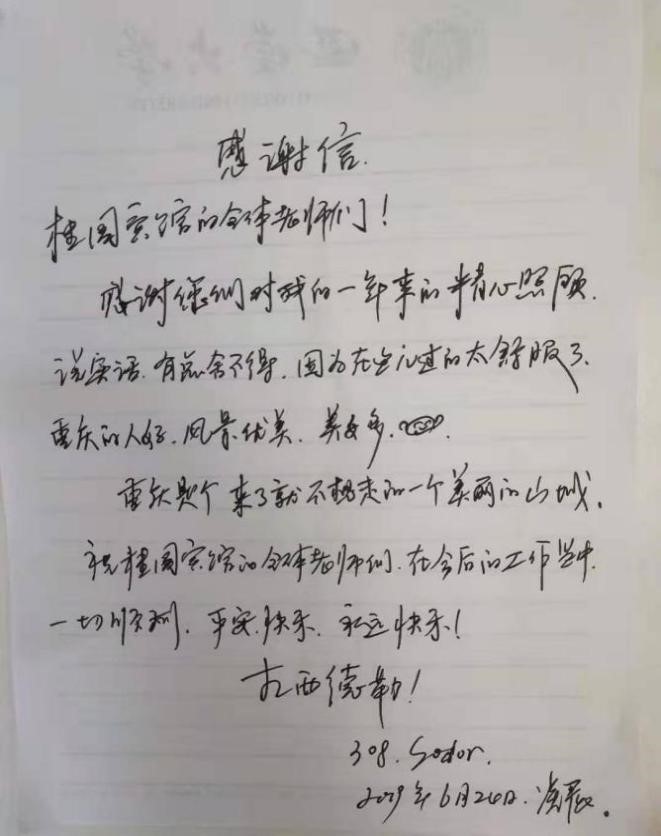 感谢信.
桂园宾馆的全体老师们！
感谢您们对我的一年来的精心照顾.
说实话.有点舍不得.因为在这儿过的太舒服了.
重庆的人好.风景优美.美女多.
重庆是个来了就不想走的一个美丽的山城.
祝桂园宾馆的全体老师们.在今后的工作当中.
一切顺利.平安.快乐.永远快乐！
扎西德勒！
308. Sodor.
2019年6月24日.凌晨.